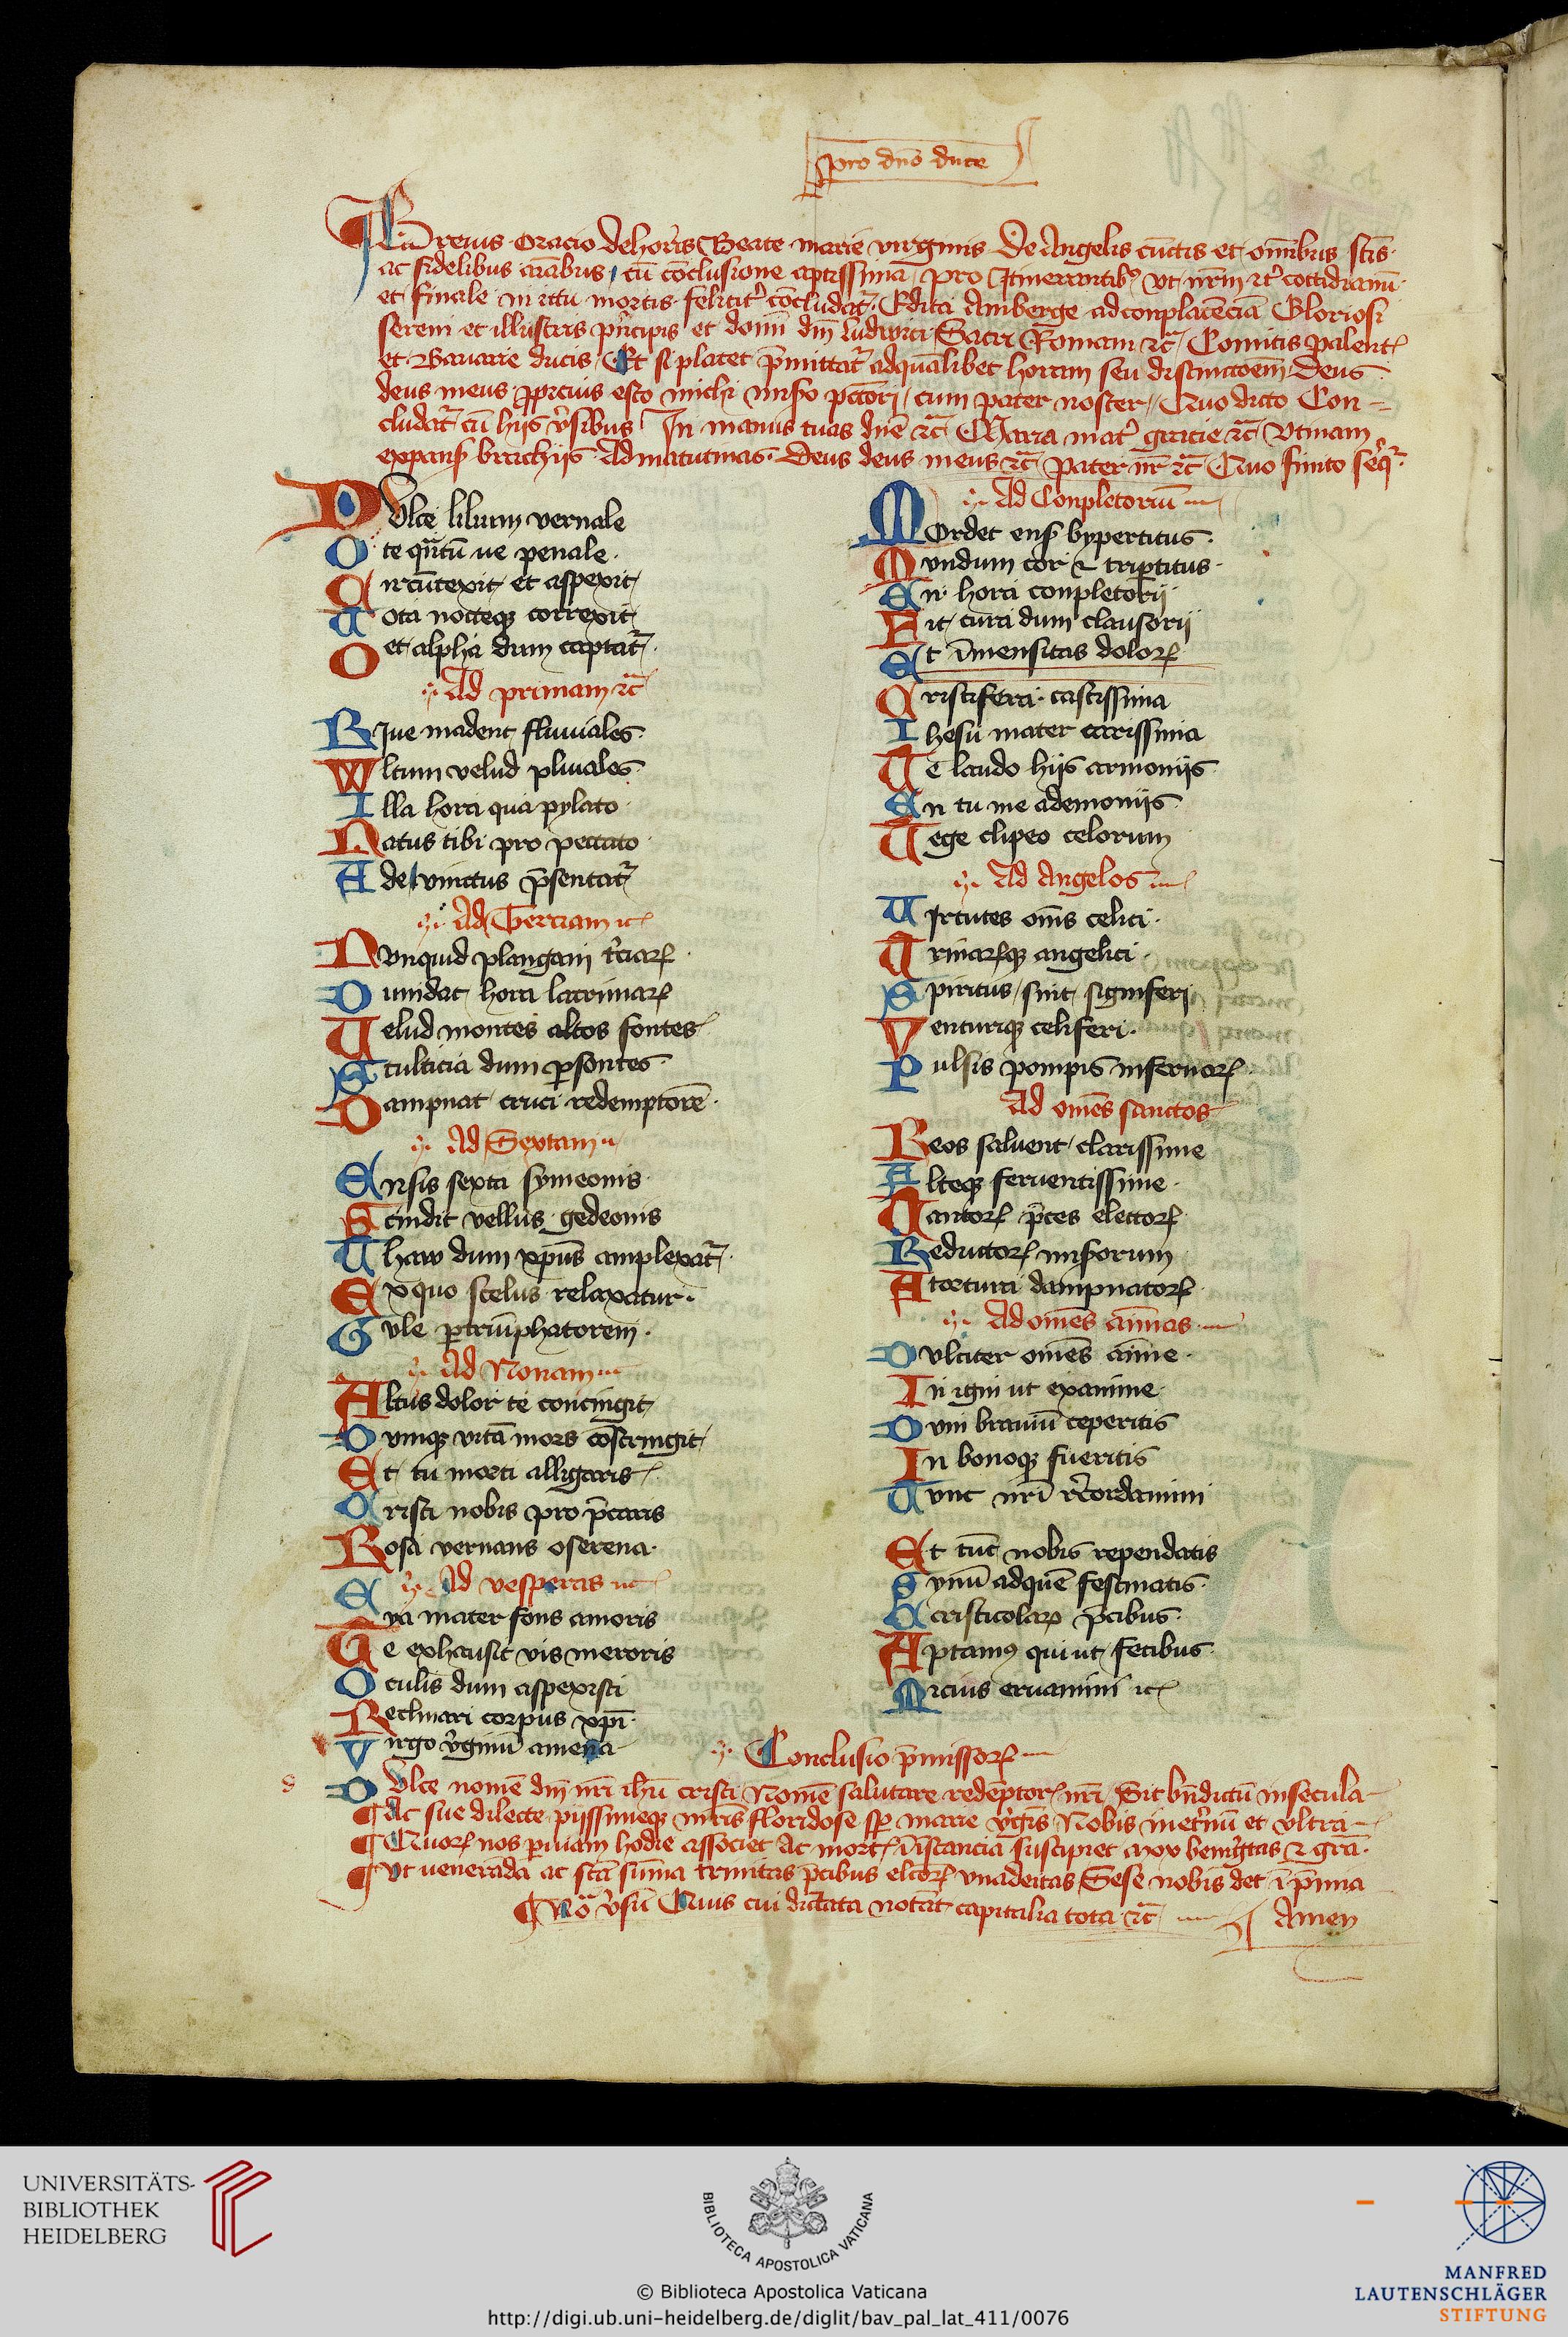 pro dno duce
Breuis oracio de horis Beate marie virginis De Angelis cunctis et omnibus scis
ac fidelibus aiabus cu coclusione aptissima pro Itinerantibus vt nrm cottidianu
et finale in ictu mortis felicit concludat Edita Amberge ad conplacencia Gloriosi
sereni et illustris principis et domi dni ludwici Sacri Romani rc Comitis palent
et Bauarie ducis Et si placet pmittat ad qualibet horam seu distinctoem Deus
deus meus ppicius esto michi misero pctori cum pater noster Quo dicto Con-
cludat cu hijs vsibus In manus tuas dne rc Maria mat gracie rc Vtinam
expans brachijs Ad matutinas Deus deus meus rc pater nr rc Quo finito seq
DVlce lilium vernale
O te qntu ue penale
Circutexit et aspexit
Tota nocteq correxit
O et alpha dum captat
Ad primam rc
RIue madent fluuiales
Wltum velud pluuiales
Illa hora qua pylato
Natus tibi pro peccato
Ade vinctus psentat
Ad Terciam rc
Nvnquid plangam terciar
Dum dat hora lacrimar
Velud montes altos fontes
Stulticia dum psontes
Dampnat cruci redemptore
Ad Sextam
Ensis sexta symeonis
Scindit vellus gedeonis
Thaw dum xpus amplexat
Ex quo scelus relaxatur
Gvle ptriuphatorem
Ad Nonam
Altus dolor te contingit
Dvmq vita mors costringit
Et tu morti alligaris
Cristi nobis pro pcaris
Rosa vernans o serena
Ad vesperas
Eya mater fons amoris
Te exhausit vis meroris
Oculis dum aspexisti
Reclinari corpus xpi
Virgo vginu amena
Ad Conpletoriu
MOrdet ens bypertitus
Mvndum cor et triptitus
En hora conpletorij
Fit cura dum clausorij
Et imensitas dolor
Cristifera castissima
Ihesu mater carissima
Te laudo hijs armonijs
En tu me a demonijs
Tege clipeo celorum
Ad Angelos
VIrtutes oms celici
Trinarq angelici
Spiritus sint signiferi
Venturiq celiferi
Pulsis pompis infernor
Ad omes sanctos
Reos saluent clarissime
Alteq feruentissime
Cantor pces elector
Reductor miserorum
A tortura dampnator
Ad omes animas
Dvlciter omes anime
In igni ut examine
Dvm brauiu ceperitis
In bonoq fueritis
Tvnc nri recordamini
Et tuc nobis rependatis
Svmu ad que festinatis
A cristicolar pcibus
Aptamus qui ut fecibus
Mcius eruamini rc
Conclusio pmissor
DVlce nome dni nri ihu cristi Nome salutare redeptor nri Sit bndictu in secula
Ac sue dilecte piissimeq mris floridose sp marie vgis Nobis in etnu et vltra
Quor nos p viam hodie associet Ac mort instancia suscipiet mox benigtas et gra
Vt venerada ac sca suma trinitas pcibus elcor vna deitas Sese nobis det i pmia
No vsu Quis cui dictata notat capitalia tota rc Amen
UNIVERSITÄTS-
BIBLIOTHEK
HEIDELBERG
BIBLIOTECA APOSTOLICA VATICANA
© Biblioteca Apostolica Vaticana
http://digi.ub.uni-heidelberg.de/diglit/bav_pal_lat_411/0076
MANFRED
LAUTENSCHLÄGER
STIFTUNG